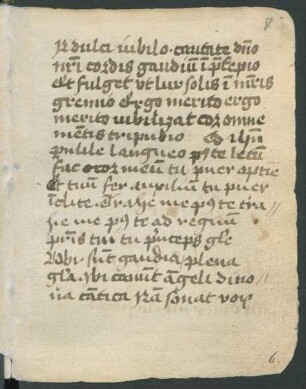 8
In dulci iubilo · cantate dño
nr̃i cordis gaudiũ ĩ p̃sepio
Et fulget vt lux solis ĩ mr̃is
gremio Ergo merito ergo
merito iubilizat cor omne
mentis tripudio
puule langueo p9 te letũ
fac cor meũ tu puer optĩe
Et tuũ fer auxiliũ tu puer
ĩclite · Trahe me p9 te tra //
he me p9 te ad regnũ
pr̃is tui tu p̃nceps gl̃e
Vbi sũt gaudia plena
gl̃a · Vbi canũt ãgeli di no //
ua cãtica sonat vox
6